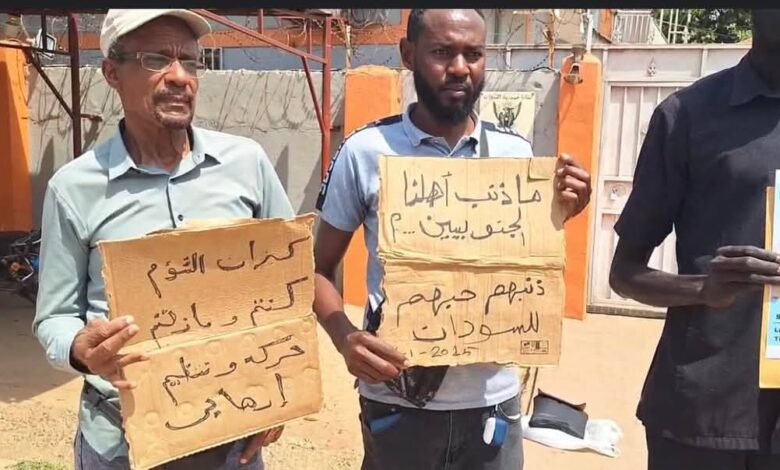 كيزان الشؤم
كنتم ومازلتم
حركه وتنظيم
إرهابي
ما ذنب أهلنا
الجنوبيين ...م
ذنبهم حبهم
للسودان
1-2025